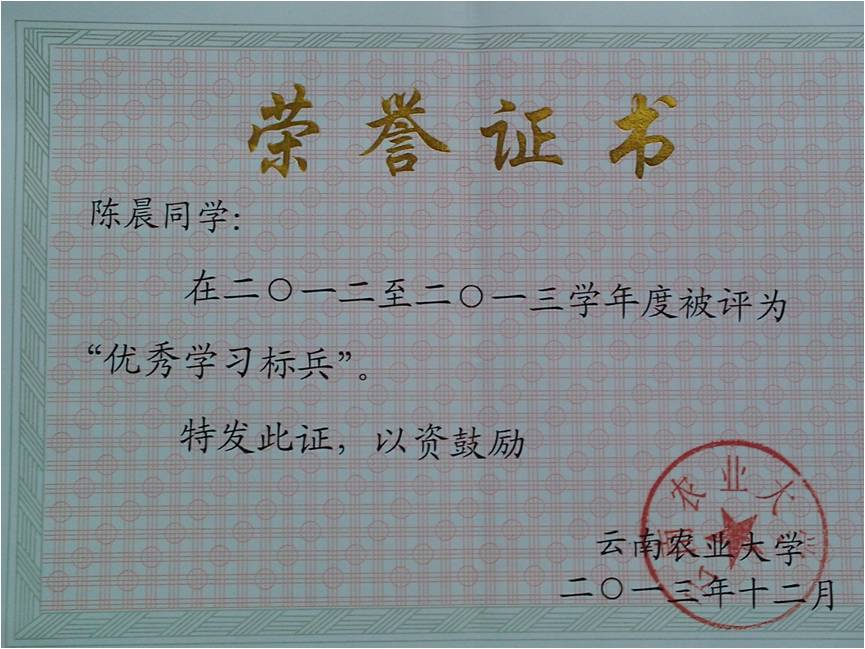 荣誉证书
陈晨同学：
在二〇一二至二〇一三学年度被评为
“优秀学习标兵”。
特发此证，以资鼓励
云南农业大学
二〇一三年十二月
云南农业大学